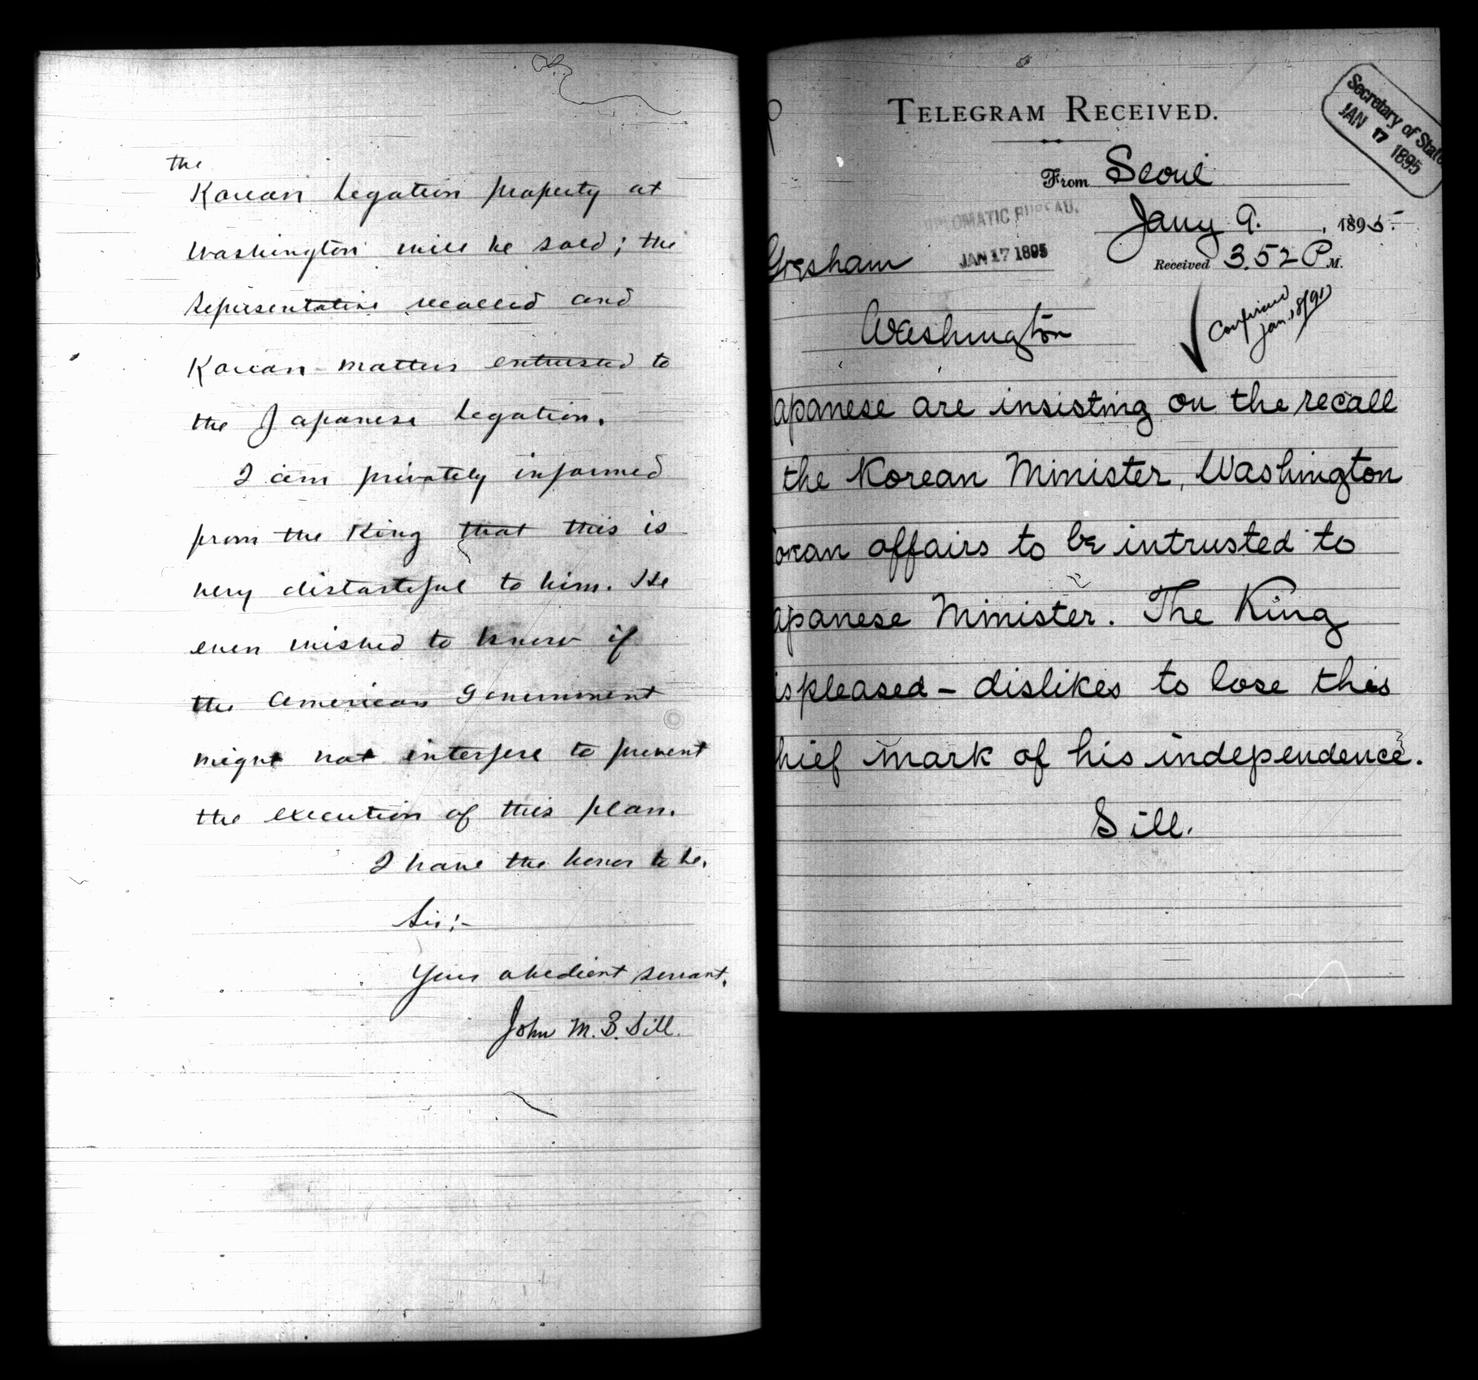 the
Korean Legation property at
Washington will be sold; the
representative recalled and
Korean matters entrusted to
the Japanese Legation.
I am privately informed
from the King that this is
very distasteful to him. He
even wished to know if
the American Government
might not interfere to prevent
the execution of this plan.
I have the honor to be,
Sir:-
Your obedient servant,
John M. B. Sill.
TELEGRAM RECEIVED.
Secretary of State
JAN 17 1895
From Seoul
DIPLOMATIC BUREAU.
JAN 17 1895
Jany 9. , 1895.
Gresham
Received 3.52 P M.
Washington
Confirmed
Jan. 18/95
apanese are insisting on the recall
the Korean Minister, Washington
orean affairs to be intrusted to
apanese Minister. The King
ispleased - dislikes to lose this
hief mark of his independence.
Sill.